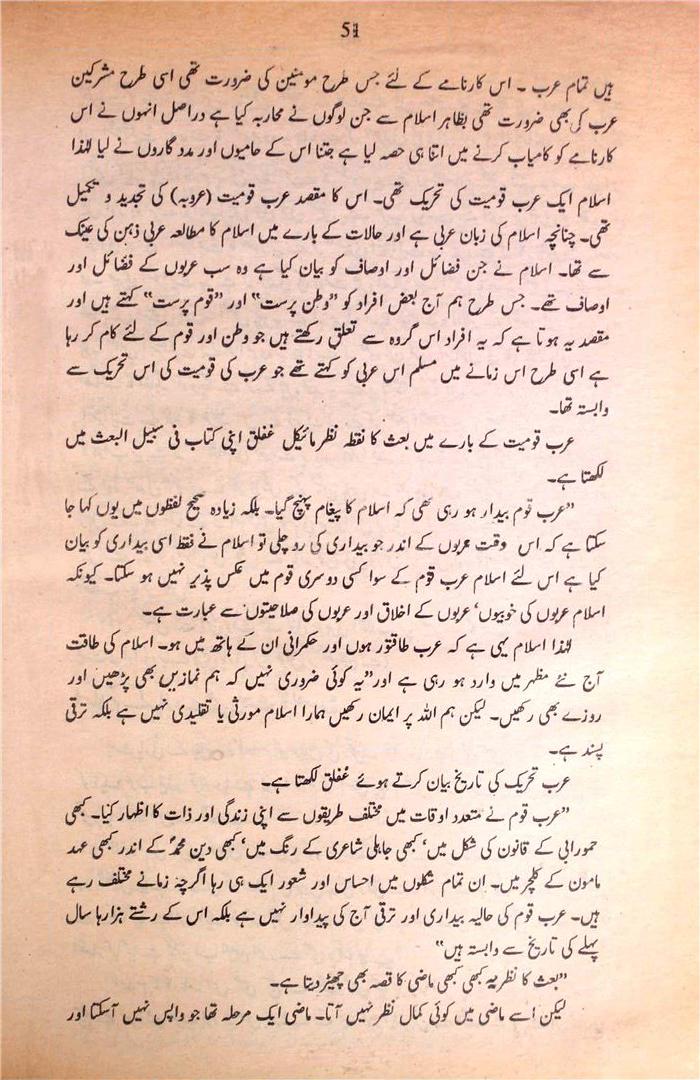 51
ہیں تمام عرب ۔ اس کارنامے کے لئے جس طرح مومنین کی ضرورت تھی اسی طرح مشرکین
عرب کی بھی ضرورت تھی بظاہر اسلام سے جن لوگوں نے محاربہ کیا ہے دراصل انہوں نے اس
کارنامے کو کامیاب کرنے میں اتنا ہی حصہ لیا ہے جتنا اس کے حامیوں اور مدد گاروں نے لیا لہٰذا
اسلام ایک عرب قومیت کی تحریک تھی۔ اس کا مقصد عرب قومیت (عروبہ) کی تجدید و تکمیل
تھی۔ چنانچہ اسلام کی زبان عربی ہے اور حالات کے بارے میں اسلام کا مطالعہ عربی ذہن کی عینک
سے تھا۔ اسلام نے جن فضائل اور اوصاف کو بیان کیا ہے وہ سب عربوں کے فضائل اور
اوصاف تھے۔ جس طرح ہم آج بعض افراد کو ”وطن پرست“ اور ”قوم پرست“ کہتے ہیں اور
مقصد یہ ہوتا ہے کہ یہ افراد اس گروہ سے تعلق رکھتے ہیں جو وطن اور قوم کے لئے کام کر رہا
ہے اسی طرح اس زمانے میں مسلم اس عربی کو کہتے تھے جو عرب کی قومیت کی اس تحریک سے
وابستہ تھا۔
عرب قومیت کے بارے میں بعث کا نقطہ نظر مائیکل عفلق اپنی کتاب فی سبیل البعث میں
لکھتا ہے۔
”عرب قوم بیدار ہو رہی تھی کہ اسلام کا پیغام پہنچ گیا۔ بلکہ زیادہ صحیح لفظوں میں یوں کہا جا
سکتا ہے کہ اس وقت عربوں کے اندر جو بیداری کی رو چلی تو اسلام نے فقط اسی بیداری کو بیان
کیا ہے اس لئے اسلام عرب قوم کے سوا کسی دوسری قوم میں عکس پذیر نہیں ہو سکتا۔ کیونکہ
اسلام عربوں کی خوبیوں‘ عربوں کے اخلاق اور عربوں کی صلاحیتوں سے عبارت ہے۔
لہٰذا اسلام یہی ہے کہ عرب طاقتور ہوں اور حکمرانی ان کے ہاتھ میں ہو۔ اسلام کی طاقت
آج نئے مظہر میں وارد ہو رہی ہے اور ”یہ کوئی ضروری نہیں کہ ہم نمازیں بھی پڑھیں اور
روزے بھی رکھیں۔ لیکن ہم اللہ پر ایمان رکھیں ہمارا اسلام موروثی یا تقلیدی نہیں ہے بلکہ ترقی
پسند ہے۔
عرب تحریک کی تاریخ بیان کرتے ہوئے عفلق لکھتا ہے۔
”عرب قوم نے متعدد اوقات میں مختلف طریقوں سے اپنی زندگی اور ذات کا اظہار کیا۔ کبھی
حمورابی کے قانون کی شکل میں‘ کبھی جاہلی شاعری کے رنگ میں‘ کبھی دین محمدؐ کے اندر کبھی عہد
مامون کے کلچر میں۔ ان تمام شکلوں میں احساس اور شعور ایک ہی رہا اگرچہ زمانے مختلف رہے
ہیں۔ عرب قوم کی حالیہ بیداری اور ترقی آج کی پیداوار نہیں ہے بلکہ اس کے رشتے ہزارہا سال
پہلے کی تاریخ سے وابستہ ہیں“
”بعث کا نظریہ کبھی کبھی ماضی کا قصہ بھی چھیڑ دیتا ہے۔
لیکن اسے ماضی میں کوئی کمال نظر نہیں آتا۔ ماضی ایک مرحلہ تھا جو واپس نہیں آسکتا اور